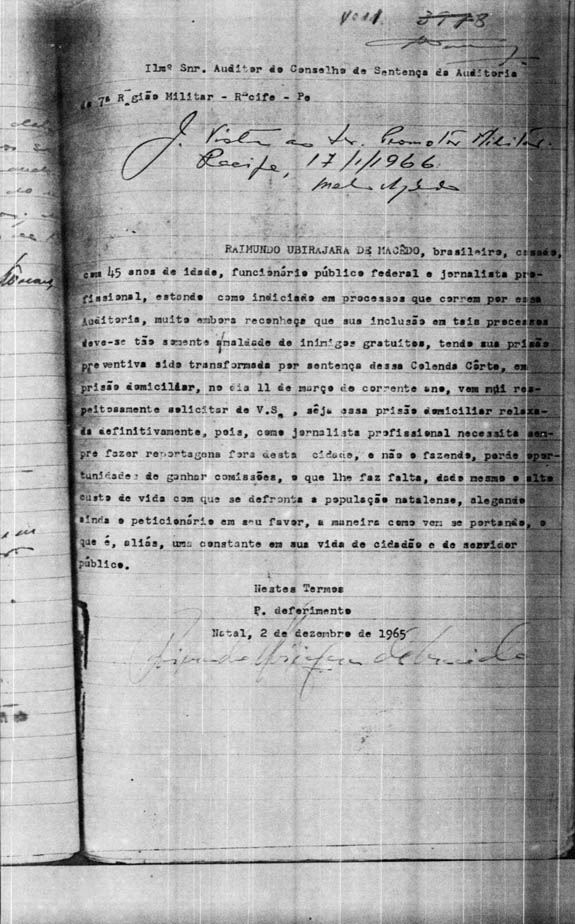 3978
Ilmº Snr. Auditor do Conselho de Sentença da Auditoria
da 7ª Região Militar - Recife - Pe
J. Vista ao Sr. Promotor Militar.
Recife, 17/1/1966
RAIMUNDO UBIRAJARA DE MACÊDO, brasileiro, casado,
com 45 anos de idade, funcionário público federal e jornalista pro-
fissional, estando como indiciado em processos que correm por essa
Auditoria, muito embora reconheça que sua inclusão em tais processos
deve-se tão somente a maldade de inimigos gratuitos, tendo sua prisão
preventiva sido transformada por sentença dessa Colenda Côrte, em
prisão domiciliar, no dia 11 de março do corrente ano, vem mui res-
peitosamente solicitar de V.Sa, sêja essa prisão domiciliar relaxa-
da definitivamente, pois, como jornalista profissional necessita sem-
pre fazer reportagens fora desta cidade, e não o fazendo, perde opor-
tunidades de ganhar comissões, o que lhe faz falta, dado mesmo o alto
custo de vida com que se defronta a população natalense, alegando
ainda o peticionário em seu favor, a maneira como vem se portando, o
que é, aliás, uma constante em sua vida de cidadão e de servidor
público.
Nestes Termos
P. deferimento
Natal, 2 de dezembro de 1965